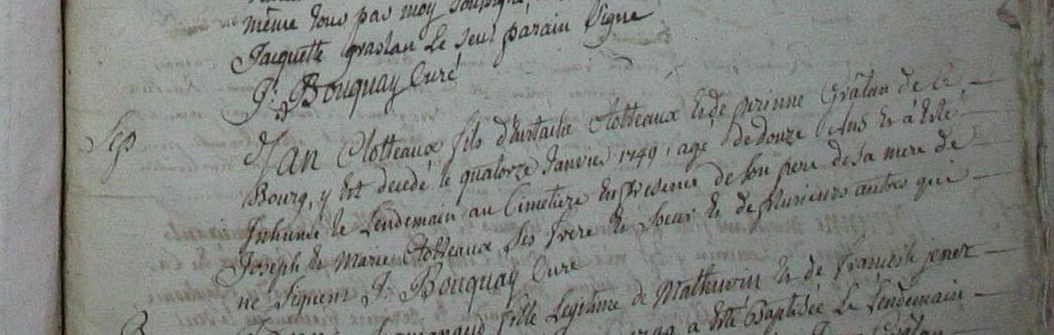 même tous par moy soussigné
Jacquette graslan Le seul parain Signe
P: Bouquay Curé
Sep
Jan Clotteaux fils d'Eustache Clotteaux Et de perinne Grâlan de Ce
Bourg, y Est decedé le quatorze Janvier 1749, agé de douze Ans Et a Esté
Inhumé le Lendemain au Cimetiere En presence de son pere de sa mere de
Joseph & Marie Clotteaux Ses frere & Soeur & de plusieurs autres qui
ne Signent P. Bouquay Curé
fille Legitime de Mathurin & de
a Esté Baptisée Le Lendemain